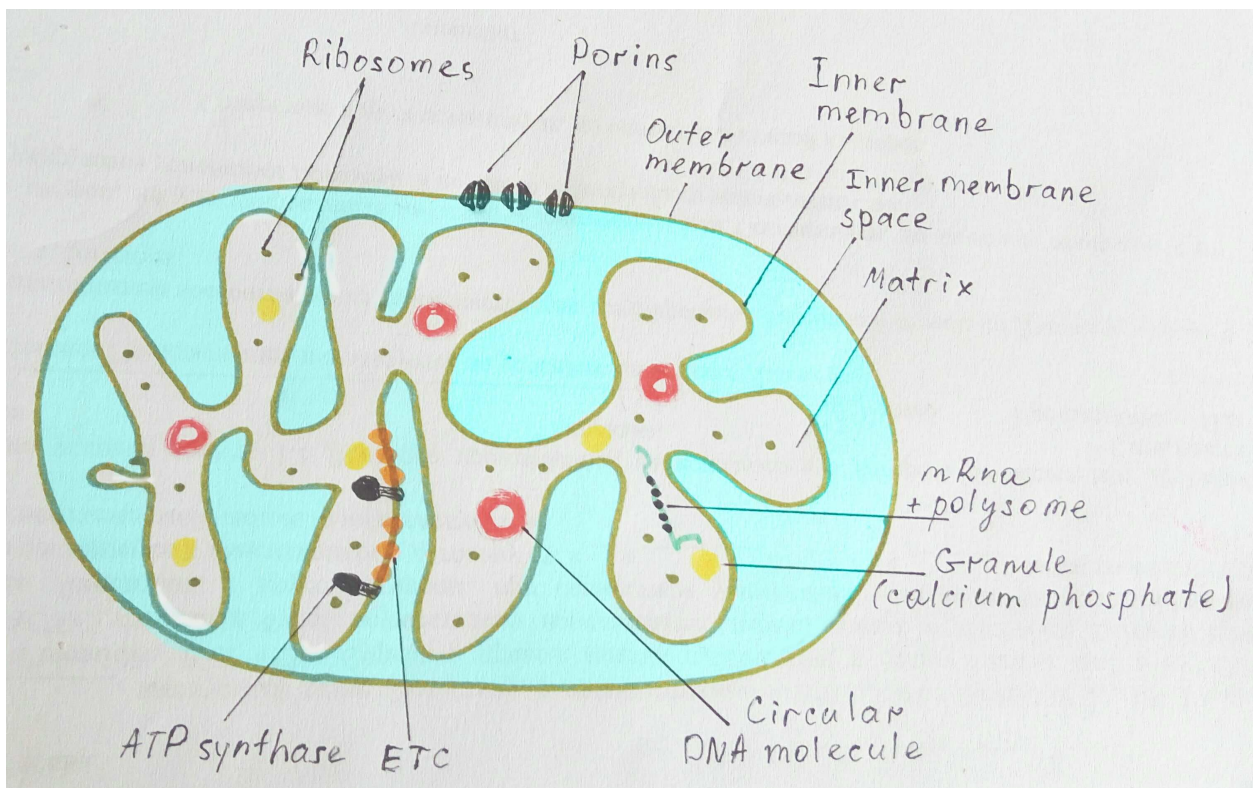 Ribosomes
Porins
Inner
membrane
Outer
membrane
Inner membrane
space
Matrix
mRna
+ polysome
Granule
(calcium phosphate)
Circular
DNA molecule
ATP synthase
ETC